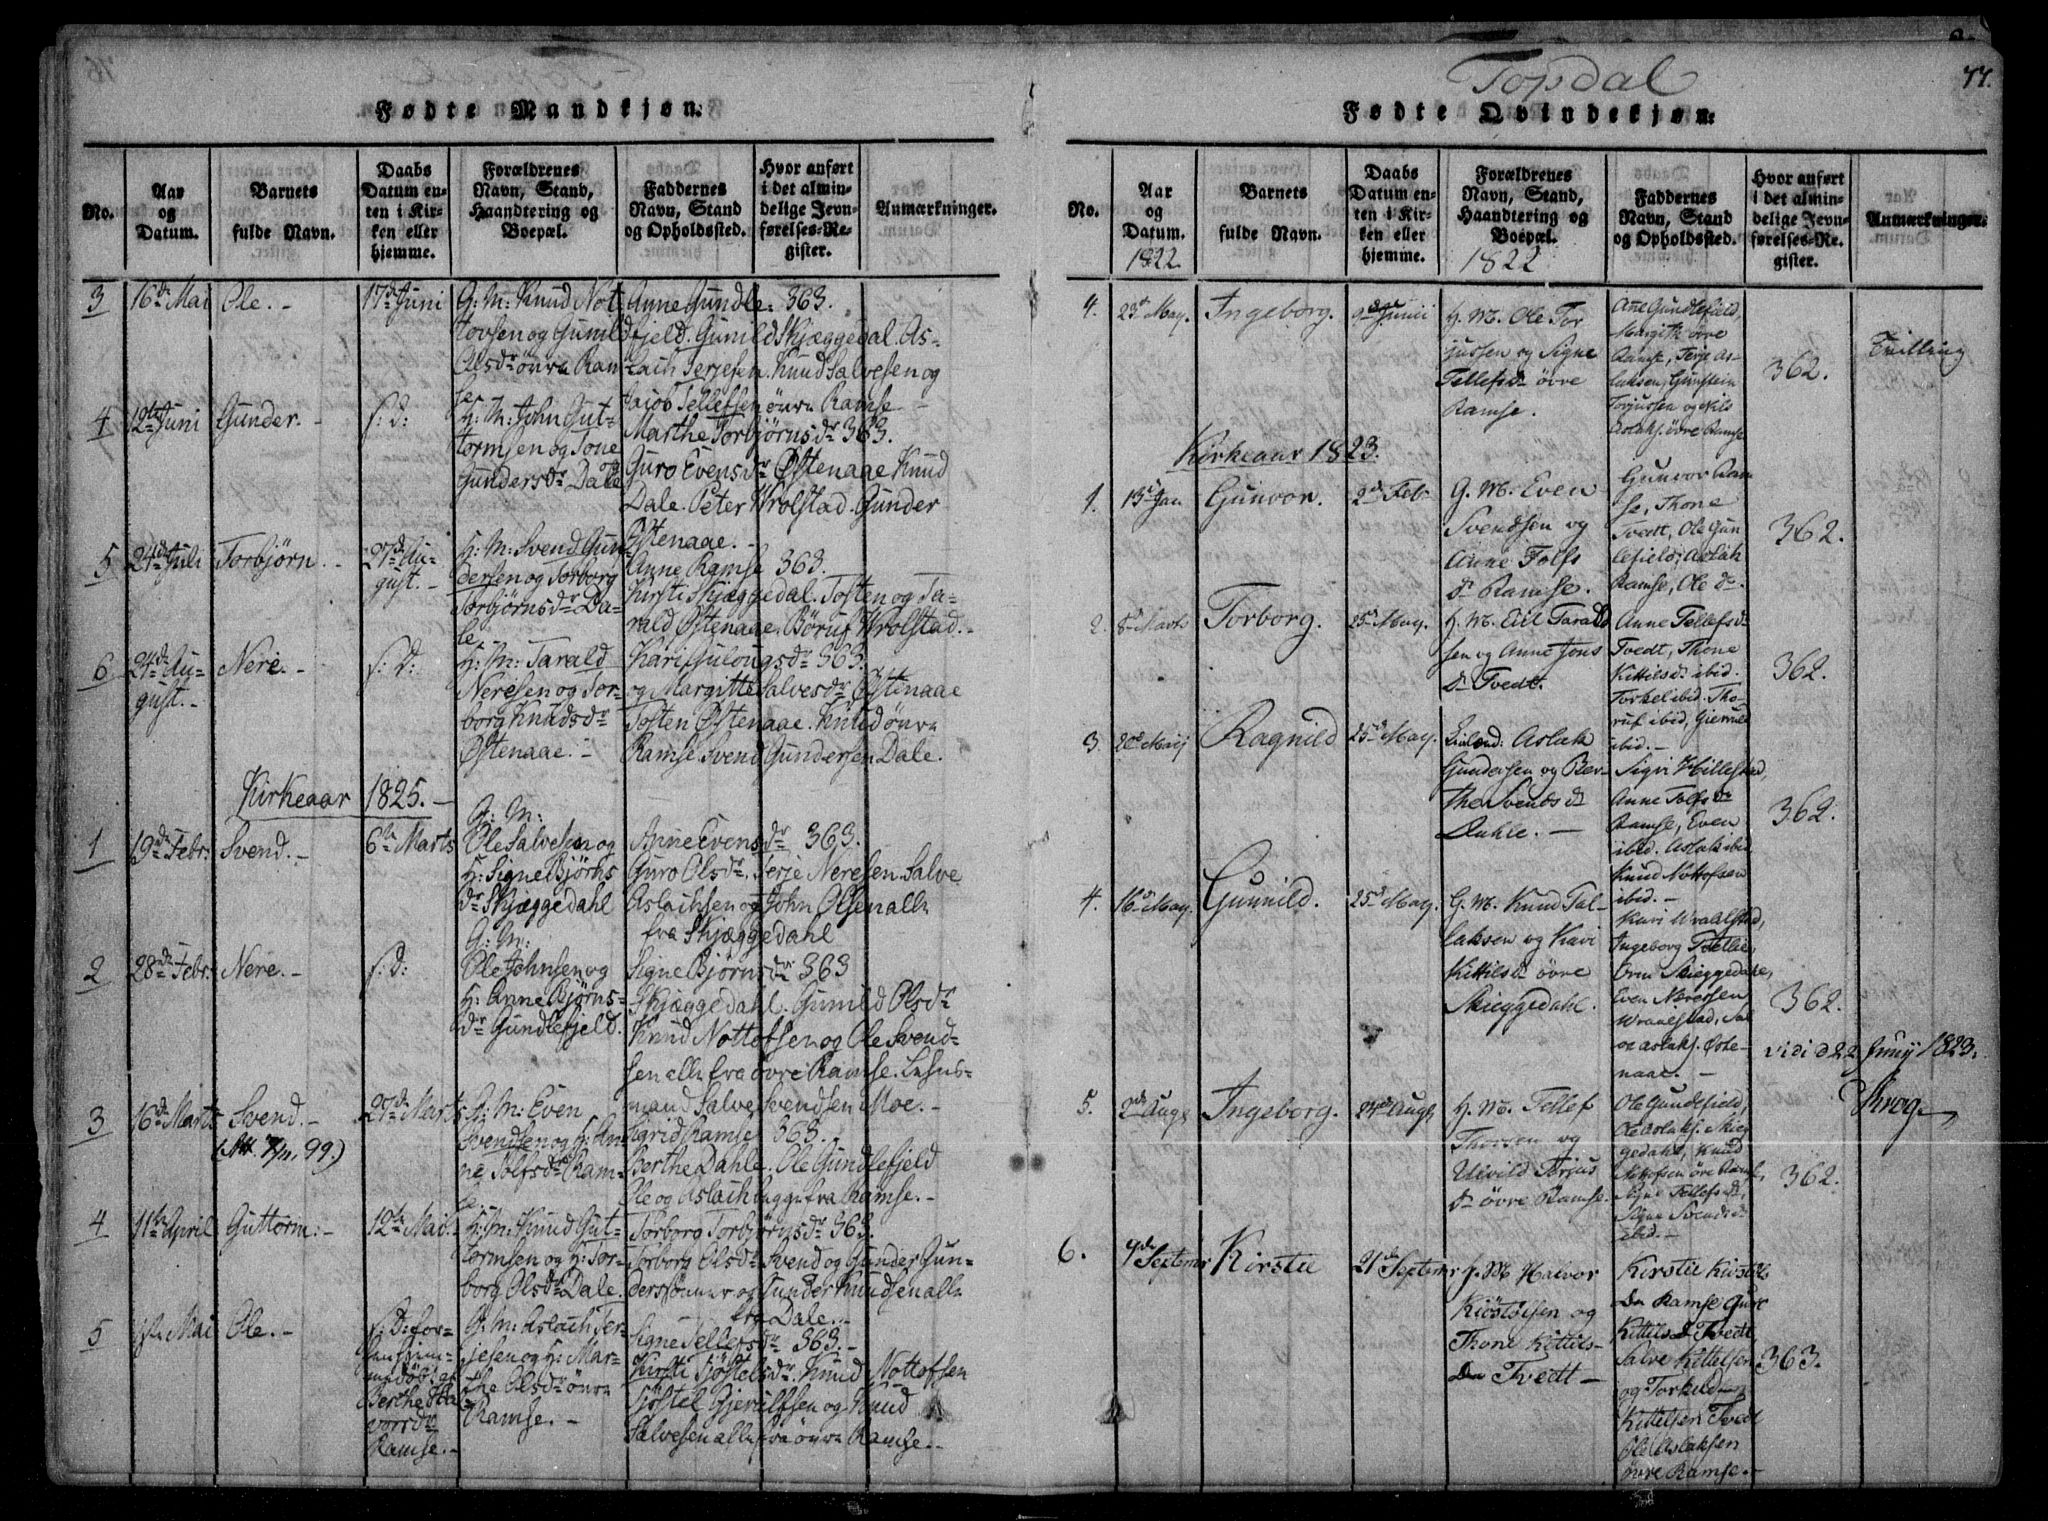 Fødte Mandkjøn.
No.
Aar
og
Datum.
Barnets
fulde Navn.
Daabs
Datum en-
ten i Kir-
ken eller
hjemme.
Forældrenes
Navn, Stand,
Haandtering og
Boepæl.
Faddernes
Navn, Stand
og Opholdssted.
Hvor anført
i det almin-
delige Jevn-
førelses-Re-
gister.
Anmærkninger.
3
16de Mai
Ole. -
17de Juni
G: M: Knud Not-
tovsen og Gunild
Olsdr øvre Ram-
se
Anne Gundle- 363.
fjeld. Gunild Skjæggedal. As-
lach Terjesen. Knud Salvesen og
Jacob Tellefsen øvre Ramse
4
12te Juni
Gunder. -
s: d:
H: M: John Gut-
tormsen og Tone
Gundersdr Dale
Marthe Torbjørnsdr 363.
Guro Evensdr Østenaae Knud
Dale. Peter Wrolstad. Gunder
Østenaae. -
5
24de Juli
Torbjørn. -
27de Au-
gust. -
H: M: Svend Gun-
dersen og Torborg
Torbjørnsdr Da-
le
Anne Ramse 363.
Kirsti Skjæggedal. Tosten og Ta-
rald Østenaae. Børuf Wrolstad. -
6
24de Au-
gust. -
Nere. -
s: d:
H: M: Tarald
Neresen og Tor-
borg Knudsdr
Østenaae. -
Kari Gulougsdr 363.
og Margitte Salvesdr Østenaae
Tosten Østenaae. Knud øvre
Ramse. Svend Gundersen Dale.
Kirkeaar 1825. -
1
19de Febr:
Svend. -
6te Marts
G: M:
Ole Salvesen og
H: Signe Bjørns
dr Skjæggedahl
Anne Evensdr 363.
Guro Olsdr. Terje Neresen. Salve
Aslachsen og John Olsen alle
fra Skjæggedahl
2
28de Febr:
Nere. -
s: d:
G: M:
Ole Johnsen og
H: Anne Bjørns-
dr Gundlefjeld.
Signe Bjørnsdr 363
Skjæggedahl. Gunild Olsdr
Knud Nottofsen og Ole Svend-
sen alle fra øvre Ramse. Lehns-
mand Salve Svendsen Moe. -
3
16de Marts
Svend. -
(Att. 7/11. 99.)
27de Marts
G: M: Even
Svendsen og H: An-
ne Tolfsdr Ram-
se
Sigrid Ramse 363.
Berthe Dahle. Ole Gundlefjeld
Ole og Aslach begge fra Ramse. -
4
11te April
Guttorm: -
12te Mai. -
H: M: Knud Gut-
tormsen og H: Tor-
borg Olsdr Dale.
Torborg Torbjørnsdr 363.
Torborg Olsdr Svend og Gunder Gun-
derssønner og Gunder Knudsen alle
fra Dale. -
5
Mai
Ole. -
s: D: for-
hen hjem-
medøbt af
Berthe Hal-
vorsdr
Ramse. -
G: M: Aslach Ter-
jesen og H: Mar-
the Olsdr øvre
Ramse. -
Signe Tellefsdr 363. -
Kirsti Tjøstelsdr. Knud Nottofsen
Tjøstel Gjerulfsen og Knud
Salvesen alle fra øvre Ramse. -
Topdal
77.
Fødte Qvindekjøn.
No.
Aar
og
Datum.
1822
Barnets
fulde Navn.
Daabs
Datum en-
ten i Kir-
ken eller
hjemme.
Forældrenes
Navn, Stand,
Haandtering og
Boepæl.
1822
Faddernes
Navn, Stand
og Opholdssted.
Hvor anført
i det almin-
delige Jevn-
førelses-Re-
gister.
Anmærkninger.
4.
23d May.
Ingeborg.
9de Junii
H. M. Ole Tor
jussen og Signe
Tellefsdr øvre
Ramse.
Ane Gundlefield,
Margith øvre
Ramse, Terje As-
laksen, Gunstein
Torjussen og Nils
Aslaks. øvre Ramse
362.
Tvilling
Kirkeaar 1823.
1.
13d Jan
Gunvor.
2d Feb.
G. M. Even
Svendsen og
Anne Tolfs
dr Ramse.
Gunvor Ram
se, Thone
Tvedt, Ole Gun
lefield, Aslak
Ramse, Ole do.
362.
2.
8d Marts
Torborg.
25d May.
H. M. Eil Tarald
sen og Anne Jons
dr Tvedt.
Anne Tellefsdr
Tvedt, Thone
Kittilsdr ibid.
Torkel ibid. Tho-
ruf ibid, Gieruld
ibid. -
362.
3.
Maij
Ragnild
25d May.
Aslak
Gundersen og Ber-
the Svendsdr
Dahle. -
Sigri Hillestad,
Anne Tolfsdr
Ramse, Even
ibid. Aslak ibid
Knud Nottofsen
ibid. -
362.
4.
16d May.
Gunnild.
25d May.
G. M. Knud Tal-
laksen og Kari
Kittilsdr øvre
Skieggedahl.
Kari Wraalstad,
Ingeborg
Orm Skieggedahl,
Even Neresen
Wraalstad, Sal
ve Aslaks. Øste-
naae. -
362.
vidi d 22 Junij 1823.
Krog.
5.
2de Aug.
Ingeborg.
24de Aug.
H. M. Tellef
Thorsen og
Torjus
dr øvre Ramse.
Ole Gundlefield,
Ole Aslaks. Skieg
gedahl, Knud
Nottofsen øvre Ramse,
Signe Tellefsdr,
Signe Svendsdr
ibid. -
362.
6.
9de
Septemr
Kirstie
21de
Septemr
H. M Halvor
Kiøstølsen og
Thone Kittils-
datr Tvedt -
Kirstie Kiøstils
datr Ramse, Guroe
Kittilsdr Tvedt,
Salve Kittelsen
og Torkild
Kittelsen Tvedt
Ole Aslaksen
øvre Ramse. -
363.